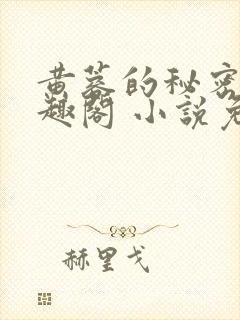 黄蓉的秘密
趣阁 小说免
赫里戈